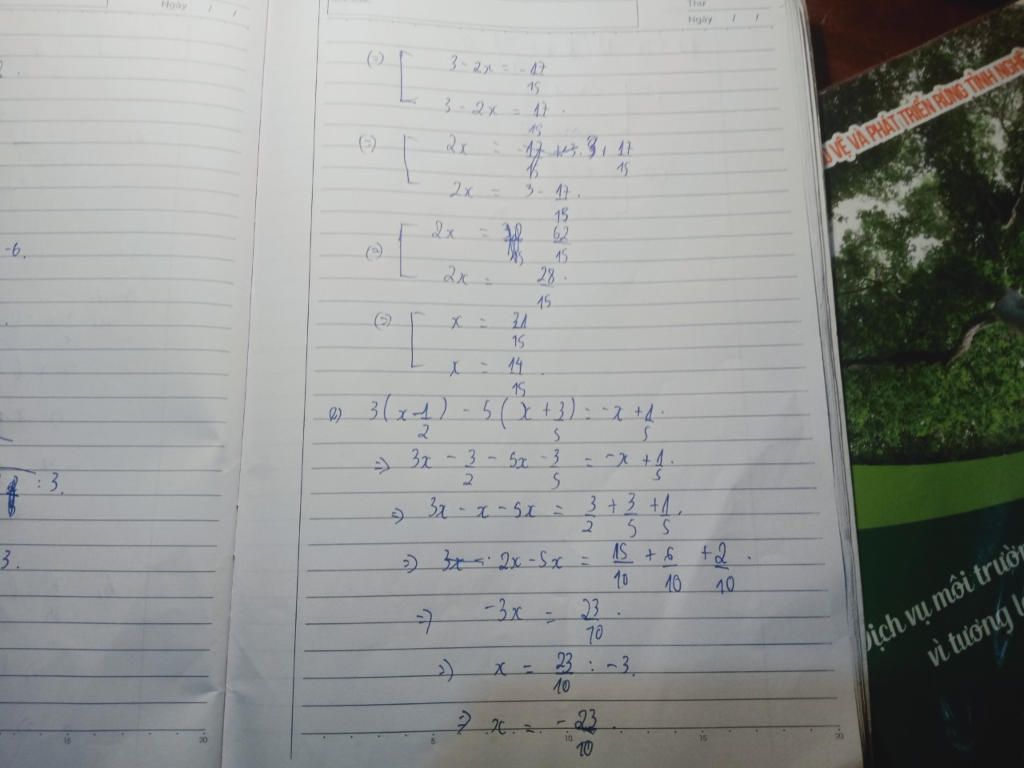 Ngày / /
Thứ
Ngày / /
2.
-6.
: 3.
3.
(=) [ 3 - 2x = -17/15
3 - 2x = 17/15.
(=) [ 2x = 3 + 17/15
2x = 3 - 17/15.
(=) [ 2x = 62/15
2x = 28/15.
(=) [ x = 31/15
x = 14/15.
3(x - 1/2) - 5(x + 3/5) = -x + 1/5.
=> 3x - 3/2 - 5x - 3/5 = -x + 1/5.
=> 3x - x - 5x = 3/2 + 3/5 + 1/5.
=> 2x - 5x = 15/10 + 6/10 + 2/10.
=> -3x = 23/10.
=> x = 23/10 : -3.
=> x = -23/10.
15
20
5
10
15
20
VỆ VÀ PHÁT TRIỂN RỪNG TỈNH NGHỆ
Dịch vụ môi trườn
vì tương la